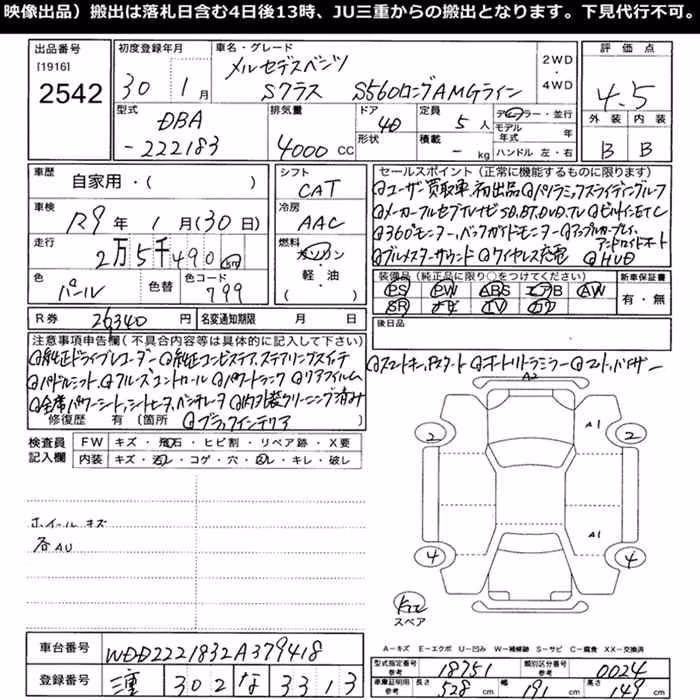 映像出品）搬出は落札日含む4日後13時、JU三重からの搬出となります。下見代行不可。
出品番号 初度登録年月 車名・グレード 評価点
[1916] 2542 30年 1月 メルセデスベンツ 2WD・4WD
Sクラス S560ロングAMGライン 4.5
型式 排気量 ドア 定員 ディーラー・並行 外装 内装
DBA-222183 4000CC 4D 5人 モデル年式 年 B B
形状 積載 -kg ハンドル 左・右
車歴 自家用・( ) シフト CAT
車検 R9年 1月(30日) 冷房 AAC
走行 2万5千490 燃料 ガソリン・軽・油 ( )
色 パール 色替 色コード 799
R券 26340円 名変通知期限 月 日
セールスポイント（正常に機能するものに限ります）
◎ユーザー買取車、初出品 ◎パノラミックスライディングルーフ
◎メーカーフルセグTVナビSD,BT,DVD,TV ◎ビルトインETC
◎360°モニター、バックガイドモニター ◎アップルカープレイ、アンドロイドオート
◎ブルメスターサウンド ◎ワイヤレス充電 ◎HUD
装備品（純正品に限り○をつけてください） 新車保証書
PS PW ABS エアB AW 有・無
SR ナビ TV カワ
後日品
注意事項申告欄（不具合内容等は具体的に記入して下さい）
◎純正ドライブレコーダー ◎純正コンビステア、ステアリングスイッチ
◎パドルシフト、◎クルーズコントロール ◎パワートランク ◎リアフィルム
◎全席パワーシート、シートヒータ、ベンチレータ ◎内外装クリーニング済み
修復歴 有（箇所 ◎ブラックインテリア ）
◎スマートキー、Pスタート ◎オートリトラミラー ◎2トップバイザー
検査員記入欄 FW キズ・飛石・ヒビ割・リペア跡・X要
内装 キズ・汚レ・コゲ・穴・スレ・キレ・破レ
ホイールキズ
各AU
A2
2 A1 2
A1
4 4
スペア
A－キズ E－エクボ U－凹み W－補修跡 S－サビ C－腐食 XX－交換済
車台番号 WDD2221832A379418
登録番号 三重 302 な 3313
型式指定番号 参考 18751 類別区分番号 参考 0024
車庫証明用 参考 長さ 528cm 幅 191cm 高さ 149cm